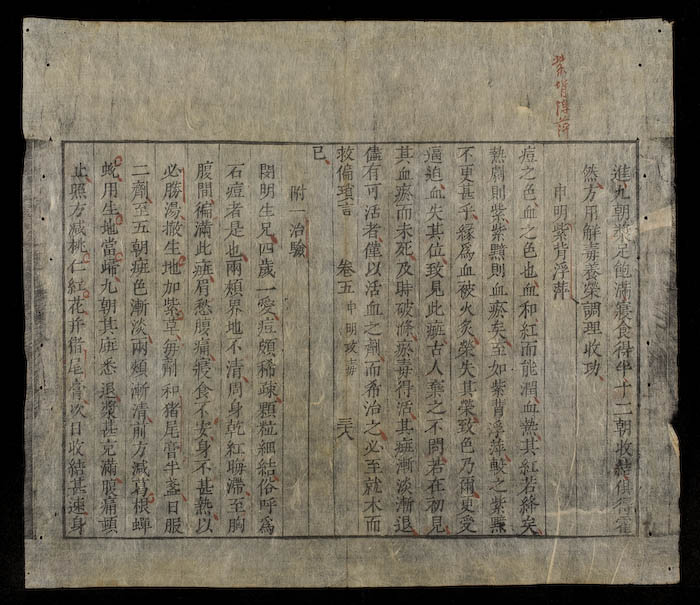 紫背浮萍
進九朝漿足飽滿寢食得半十二朝收結俱得霍
然方用解毒養榮調理收功
申明紫背浮萍
痘之色血之色也血和紅而能潤血熱其紅若絳矣
熱劇則紫紫黯則血瘀矣至如紫背浮萍較之紫黑
不更甚乎緣爲血被火炙榮失其榮致色乃爾更受
逼迫血失其位致見此症古人棄之不問若在初見
其血瘀而未死及時破滌瘀毒得活其症漸淡漸退
儘有可活者僅以活血之劑而希治之必至就木而
救偏瑣言 卷五 申明攻毒 三八
已
附一治驗
閔明生兄四歲一愛痘頗稀疎顆粒細結俗呼爲
石痘者是也兩頰界地不清周身乾紅晦滯至胸
腹間徧滿此症眉愁腹痛寢食不安身不甚熱以
必勝湯撤生地加紫草每劑和猪尾膏半盞日服
二劑至五朝症色漸淡兩頰漸清前方減葛根蟬
蛻用生地當歸九朝其症悉退漿甚充滿腹痛頭
止照方減桃仁紅花并猪尾膏次日收結甚速身